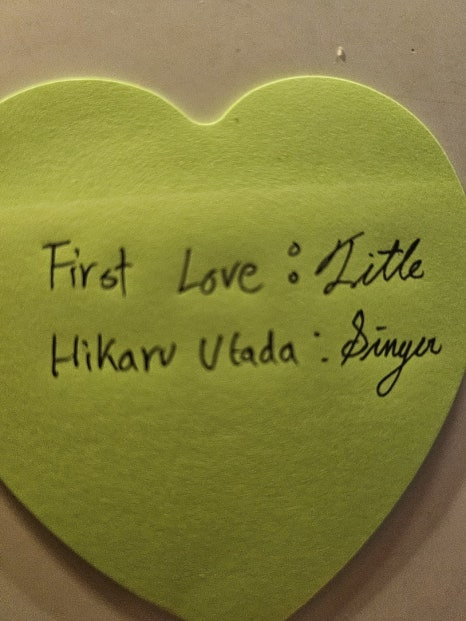 First Love : Title
Hikaru Utada : Singer